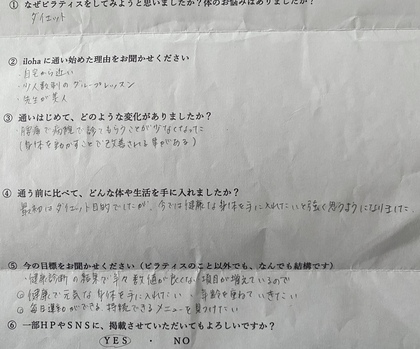 ① なぜピラティスをしてみようと思いましたか?体のお悩みはありましたか?
ダイエット
② iloha に通い始めた理由をお聞かせください
・自宅から近い
・少人数制のグループレッスン
・先生が美人
③ 通いはじめて、どのような変化がありましたか?
・腰痛で病院で診てもらうことが少なくなった
(身体を動かすことで改善される事がある)
④ 通う前に比べて、どんな体や生活を手に入れましたか?
最初はダイエット目的でしたが、今では健康な身体を手に入れたいと強く思うようになりました
⑤ 今の目標をお聞かせください(ピラティスのこと以外でも、なんでも結構です)
・健康診断の結果で年々数値が良くない項目が増えているので
① 健康で元気な身体を手に入れたい・年齢を重ねていきたい
② 毎日運動ができる持続できるメニューを見つけたい
⑥ 一部HPやSNSに、掲載させていただいてもよろしいですか?
YES ・ NO